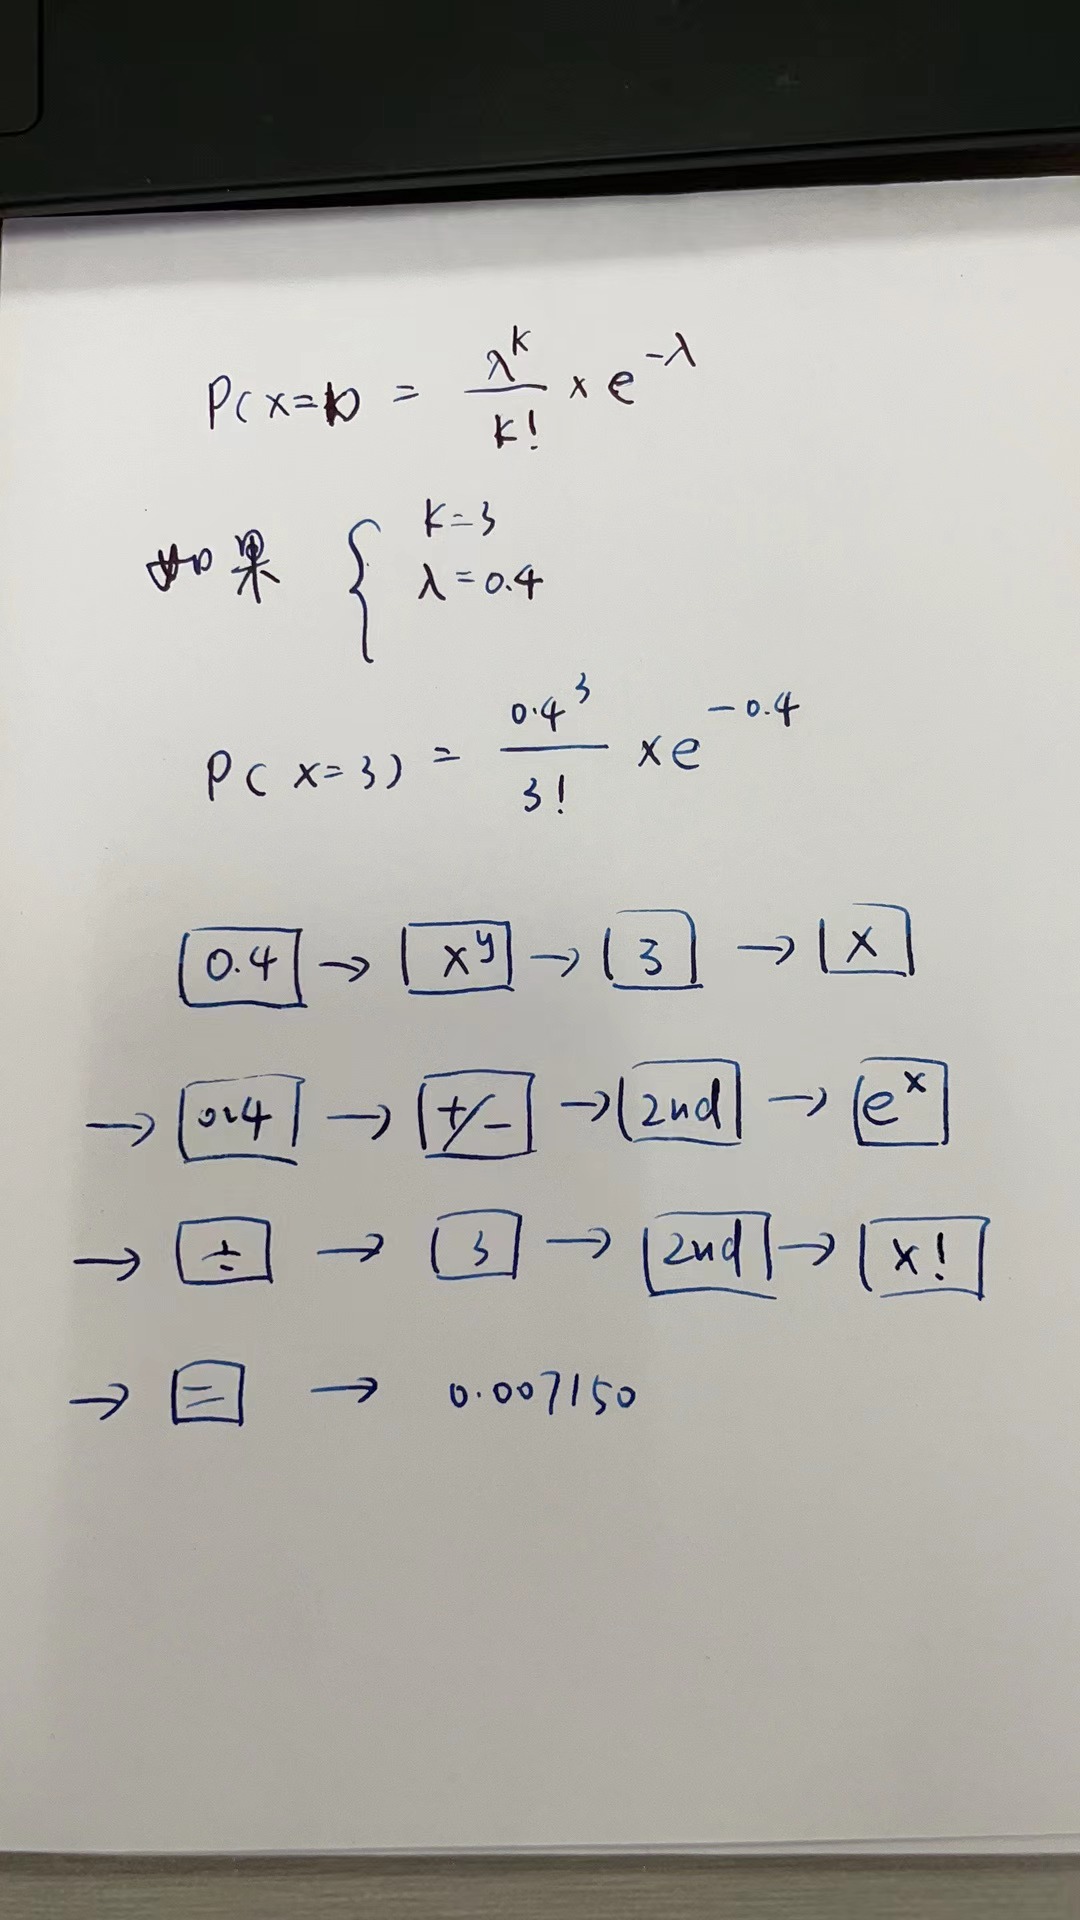 P(x=k) = λ^k / k! × e^-λ
如果 { k=3
λ=0.4
P(x=3) = 0.4^3 / 3! × e^-0.4
0.4 → x^y → 3 → ×
→ 0.4 → +/- → 2nd → e^x
→ ÷ → 3 → 2nd → x!
→ = → 0.007150